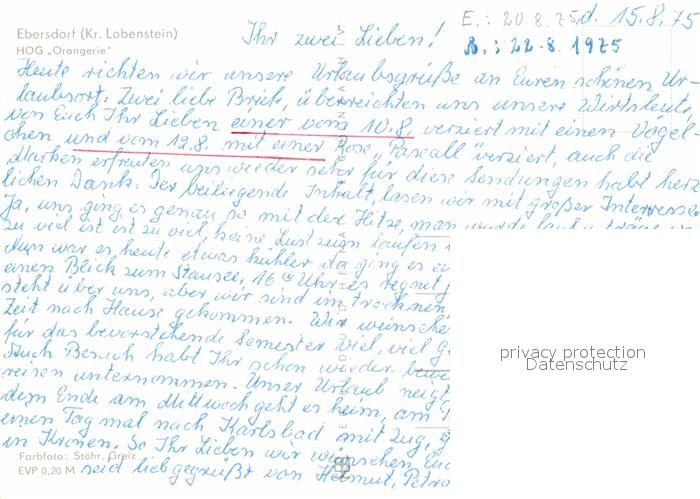 Ebersdorf (Kr. Lobenstein)
HOG „Orangerie"
E.: 20.8.75 d. 15.8.75
B.: 22.8.1975
Ihr zwei Lieben!
Heute richten wir unsere Urlaubsgrüße an Euren schönen Ur-
laubsort. Zwei liebe Briefe, überreichten uns unsere Wirtsleute
von Euch Ihr Lieben einer vom 10.8. verziert mit einen Vögel-
chen und vom 12.8. mit einer Rose „Pascali" verziert, auch die
Marken erfreuten uns wieder sehr für diese Sendungen habt herz
lichen Dank. Der beiliegende Inhalt, lasen wir mit großer Interresse
Ja, uns ging es genau so mit der Hitze, man wurde
zu viel ist ist zu viel, keine Lust zum laufen
Nun war es heute etwas kühler da ging es
einen Blick zum Stausee, 16 Uhr es regnet
steht über uns, aber wir sind im trocknen
Zeit nach Hause gekommen. Wir wünsche
für das bevorstehende Semester viel, viel
Auch Besuch habt Ihr schon wieder
reisen unternommen. Unser Urlaub neigt
dem Ende am Mittwoch geht es heim, am
einen Tag mal nach Karlsbad mit Zug,
in Kronen. So Ihr Lieben wir wünschen Euch
seid lieb gegrüßt von Helmut, Petra
Farbfoto: Stöhr, Greiz
EVP 0,20 M
privacy protection
Datenschutz